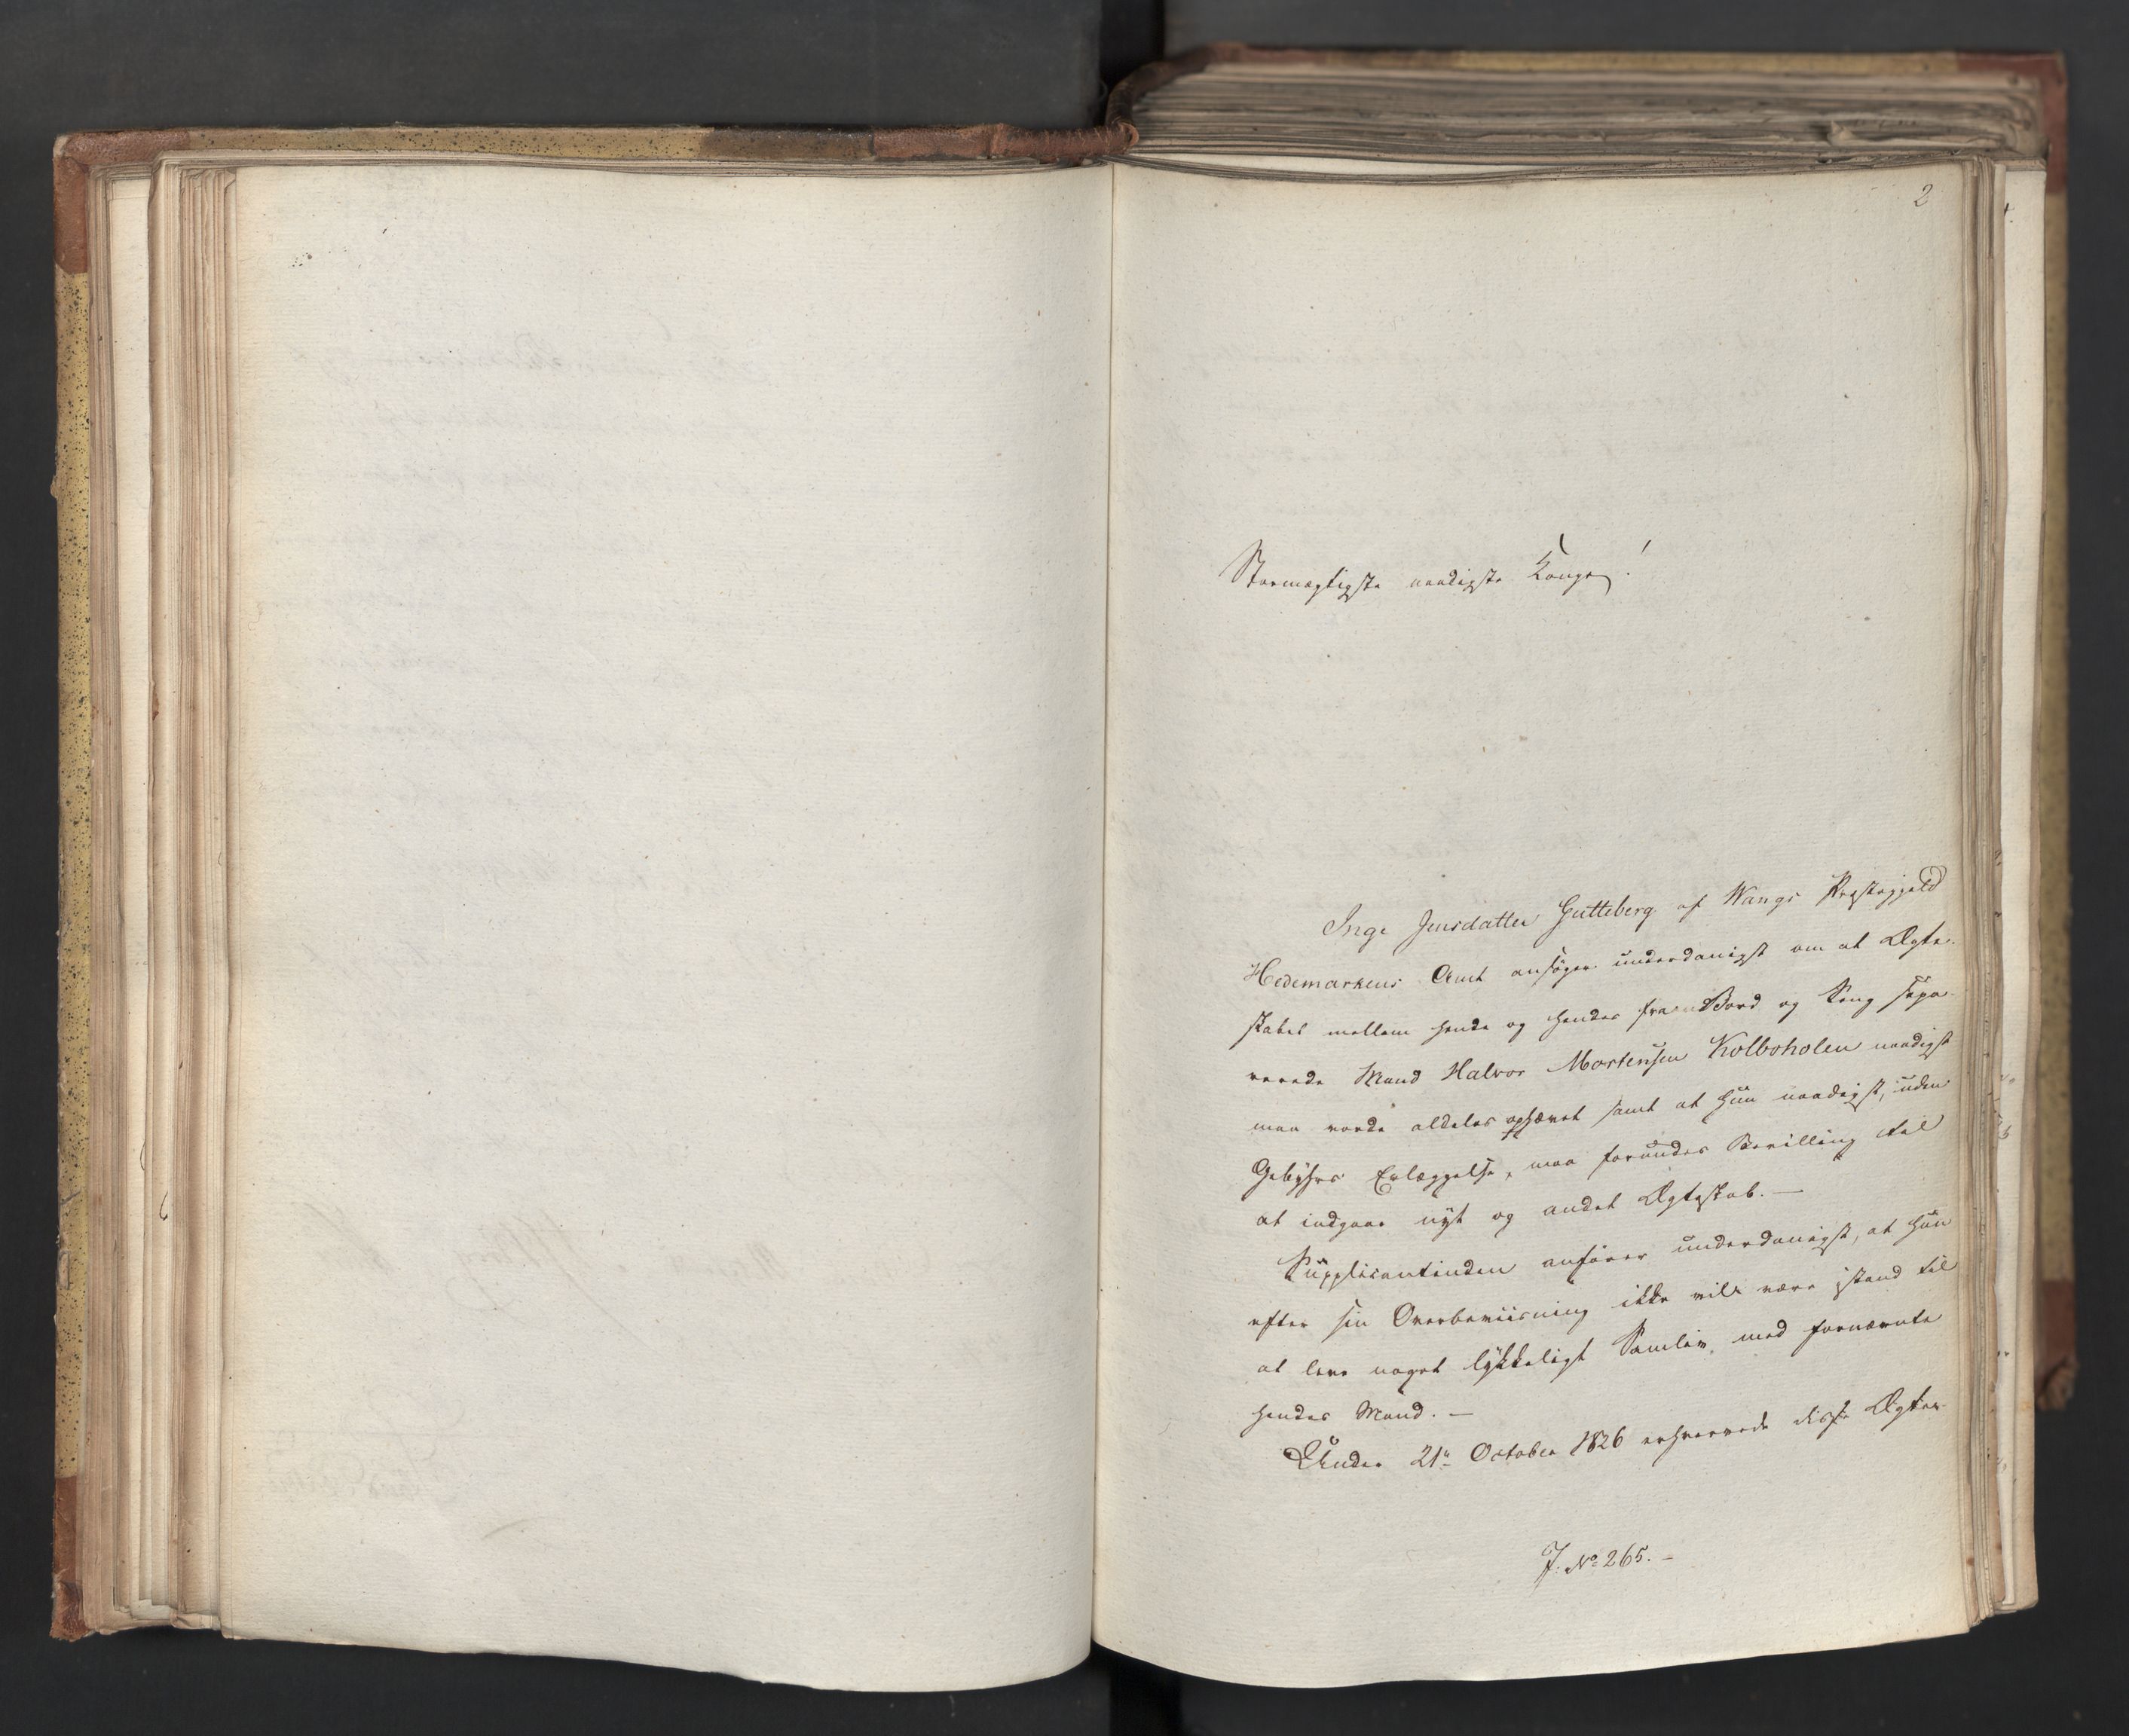 2
Stormægtigste naadigste Konge!
Inge Jensdatter Gutteberg af Wangs Præstegjeld
Hedemarkens Amt ansøger underdanigst om at Ægte-
skabet mellem hende og hendes fra Bord og Seng sepa-
rerede Mand Halvor Mortensen Kolboholen naadigst
maa vorde aldeles ophævet samt at hun naadigst, uden
Gebyhrs Erlæggelse, maa forundes Bevilling til
at indgaae nyt og andet Ægteskab. —
Supplicantinden anfører underdanigst, at hun
efter sin Overbeviisning ikke vil være istand til
at leve noget lykkeligt Samliv med fornævnte
hendes Mand. —
Under 21de October 1826 erhvervede disse Ægte-
J: No 265. –